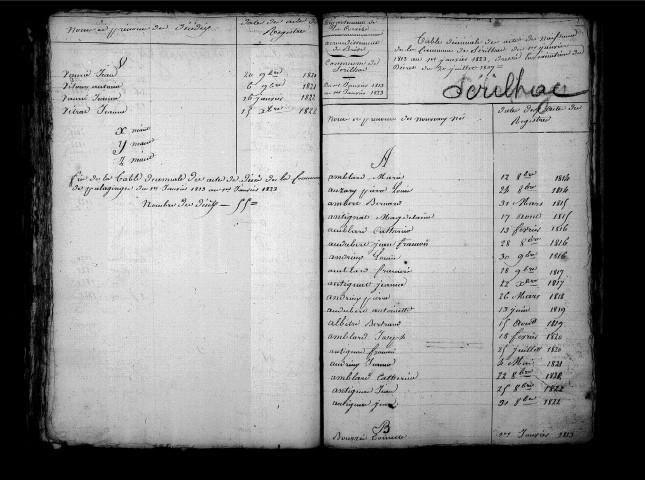 Noms et prénoms des Décédés
Date des actes du Registre
V
Jean 20 9bre 1820
6 9bre 1821
26 janvier 1822
Jeanne 15 Xbre 1822
X néant
Y néant
Z néant
fin de la Table décennale des actes de Décès de la Commune
de palazinges du 1er Janvier 1813 au 1er Janvier 1823
Nombre de décès — 55=
Département de la Corrèze
arrondissement de Brive
Commune de Sérilhac
Du 1er Janvier 1813
au 1er Janvier 1823
Table décennale des actes de Naissance
de la Commune de Sérilhac du 1er janvier
1813 au 1er janvier 1823, dressée en exécution du
Décret du 20 juillet 1807=
Sérilhac
Noms et prénoms des nouveaux nés
Dates des actes du Registre
A
amblard Marie 12 8bre 1814
Louis 24 8bre 1814
Bernard 31 Mars 1815
antignac Magdelaine 17 aout 1815
amblard Catherine 13 février 1816
audubert jean francois 28 8bre 1816
andrieu Louis 30 9bre 1816
amblard 28 9bre 1817
antignac jeanne 22 Xbre 1817
andrieu pierre 26 Mars 1818
audubert antoinette 13 juin 1819
Bertrand 15 aout 1819
amblard Joseph 18 février 1820
antignac 25 juillet 1820
andrieu 4 Mai 1821
amblard Catherine 22 8bre 1821
antignac Jean 25 8bre 1822
antignac 30 8bre 1822
B
1er Janvier 1813